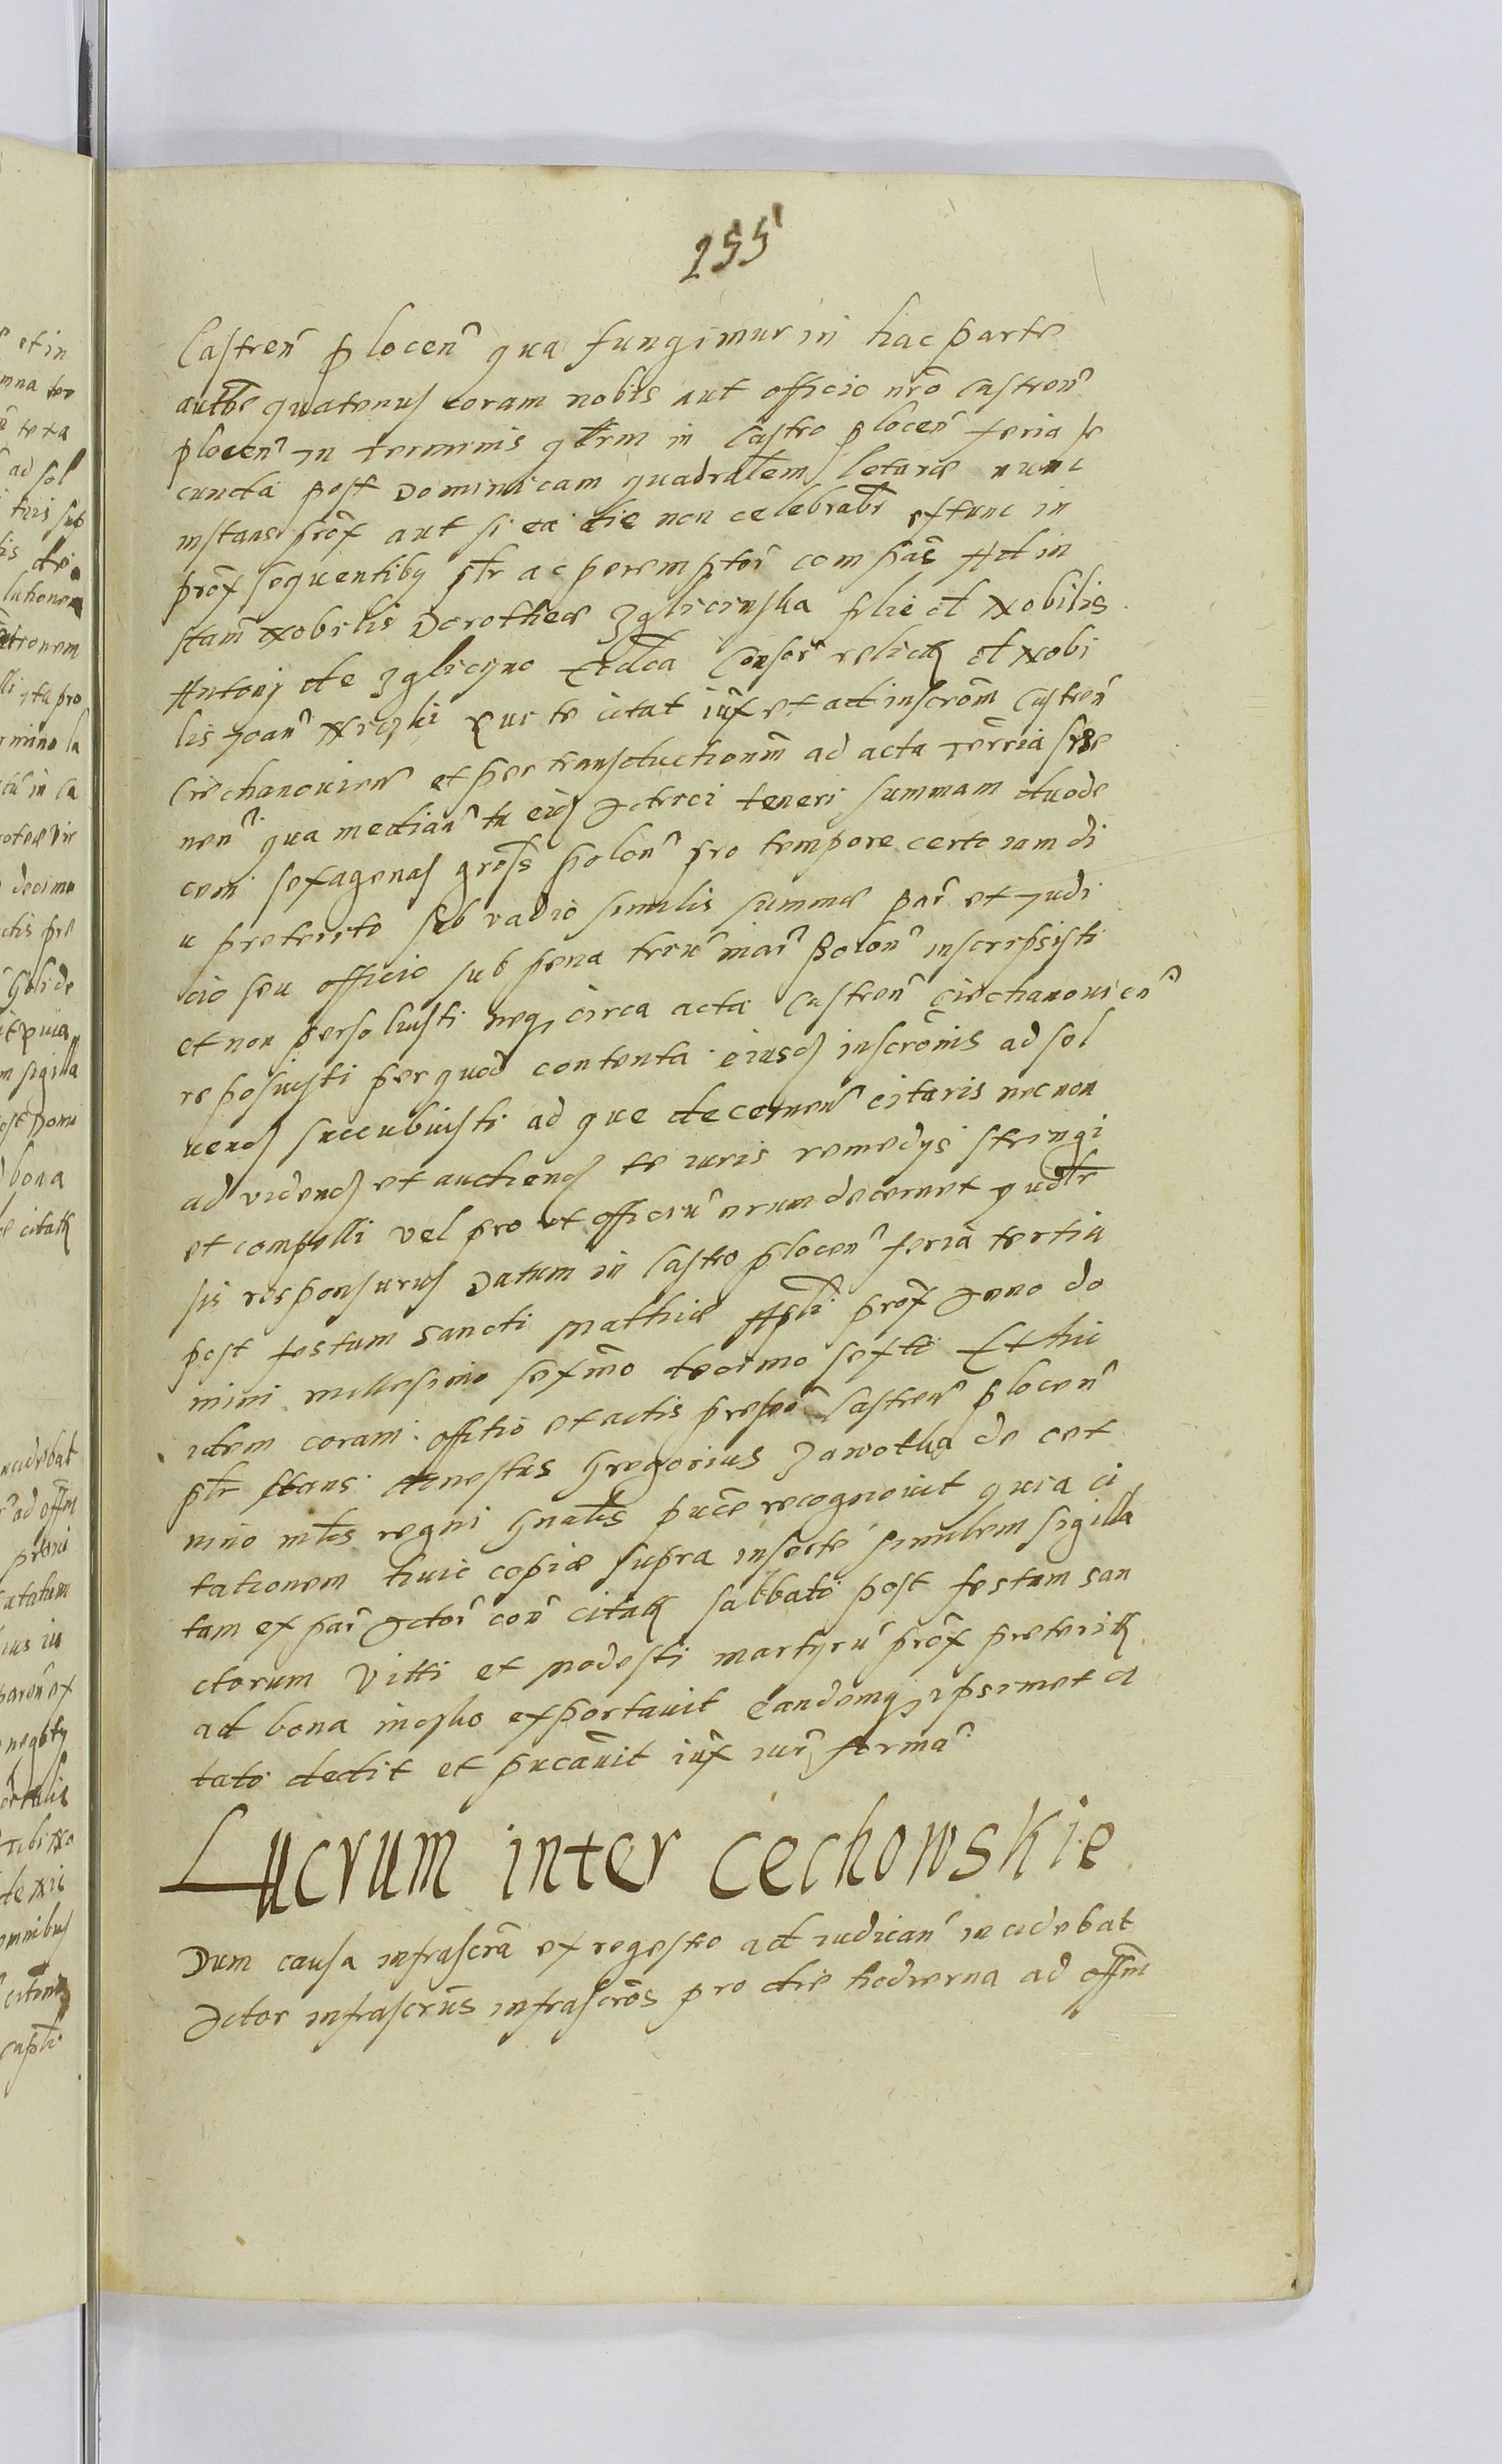 255
Castren̄ plocen̄ qua fungimur in hac parte
authte quatenus coram nobis aut officio nr̄o castren̄
plocen̄ In terminis qrlm in Castro plocen̄ feria se
cunda post Dominicam quadralem letare nunc
instans prox̄ aut si ea die non celebrabr̄ extunc in
prox̄ sequentibq ptr ac peremptor̄ compās Ad in
stam̄ Nobilis Dorothee Zglicinska filie ol Nobilis
Antonij de Zglicyno Consor̄ relictę ol Nobi
lis Joan̄ Niczki Qui te citat iux̄ et ad inscrom̄ Castren̄
Ciechanouien̄ et per transductionem̄ ad acta Terr̄ia
nen̄ qua median̄ tu eidę Actrici teneri summam duode
cem sexagenas gross̄ polon̄ pro tempore certo iam di
u preterito sub vadio similis summe par̄ et Judi
cio seu officio sub pena triu̅ mar̄ Polon̄ inscripsisti
et non persoluisti neqz circa acta Castren̄ Ciechanouien̄
reposuisti per quod contenta eiusdę inscrōnis ad sol
uendę succubuisti ad que decernen̄ citaris nec non
ad videndę et audiendę te iuris remedijs stringi
et compelli vel pro ut officiu̅ nrum decernet Judtr
sis responsurus Datum in Castro plocen̄ feria tertia
post festum Sancti Mathie Apli prox̄ Anno do
mini millesimo sexmo decimo sexto Et hic
idem coram officio et actis presen̄ Castren̄ plocen̄
ptr stans honestus Gregorius Zawotka de cet
nino mlis regni Gnalis puce recognouit quia ci
tationem huic copie supra inserte similem sigilla
tam ex par̄ Actor̄ con̄ citatę sabbato post festum san
ctorum Vitti et Modesti martyru̅ prox̄ preteritę
ad bona exportauit eandemqz ipsimet ci
tato dedit et pucauit iux̄ iur̄ forma̅
Lucrum inter Cechowskie
Dum causa infrascra̅ ex regestro ad iudican̄ incidebat
Actor infrascrūs infrascrōs pro die hodierna ad offm̄